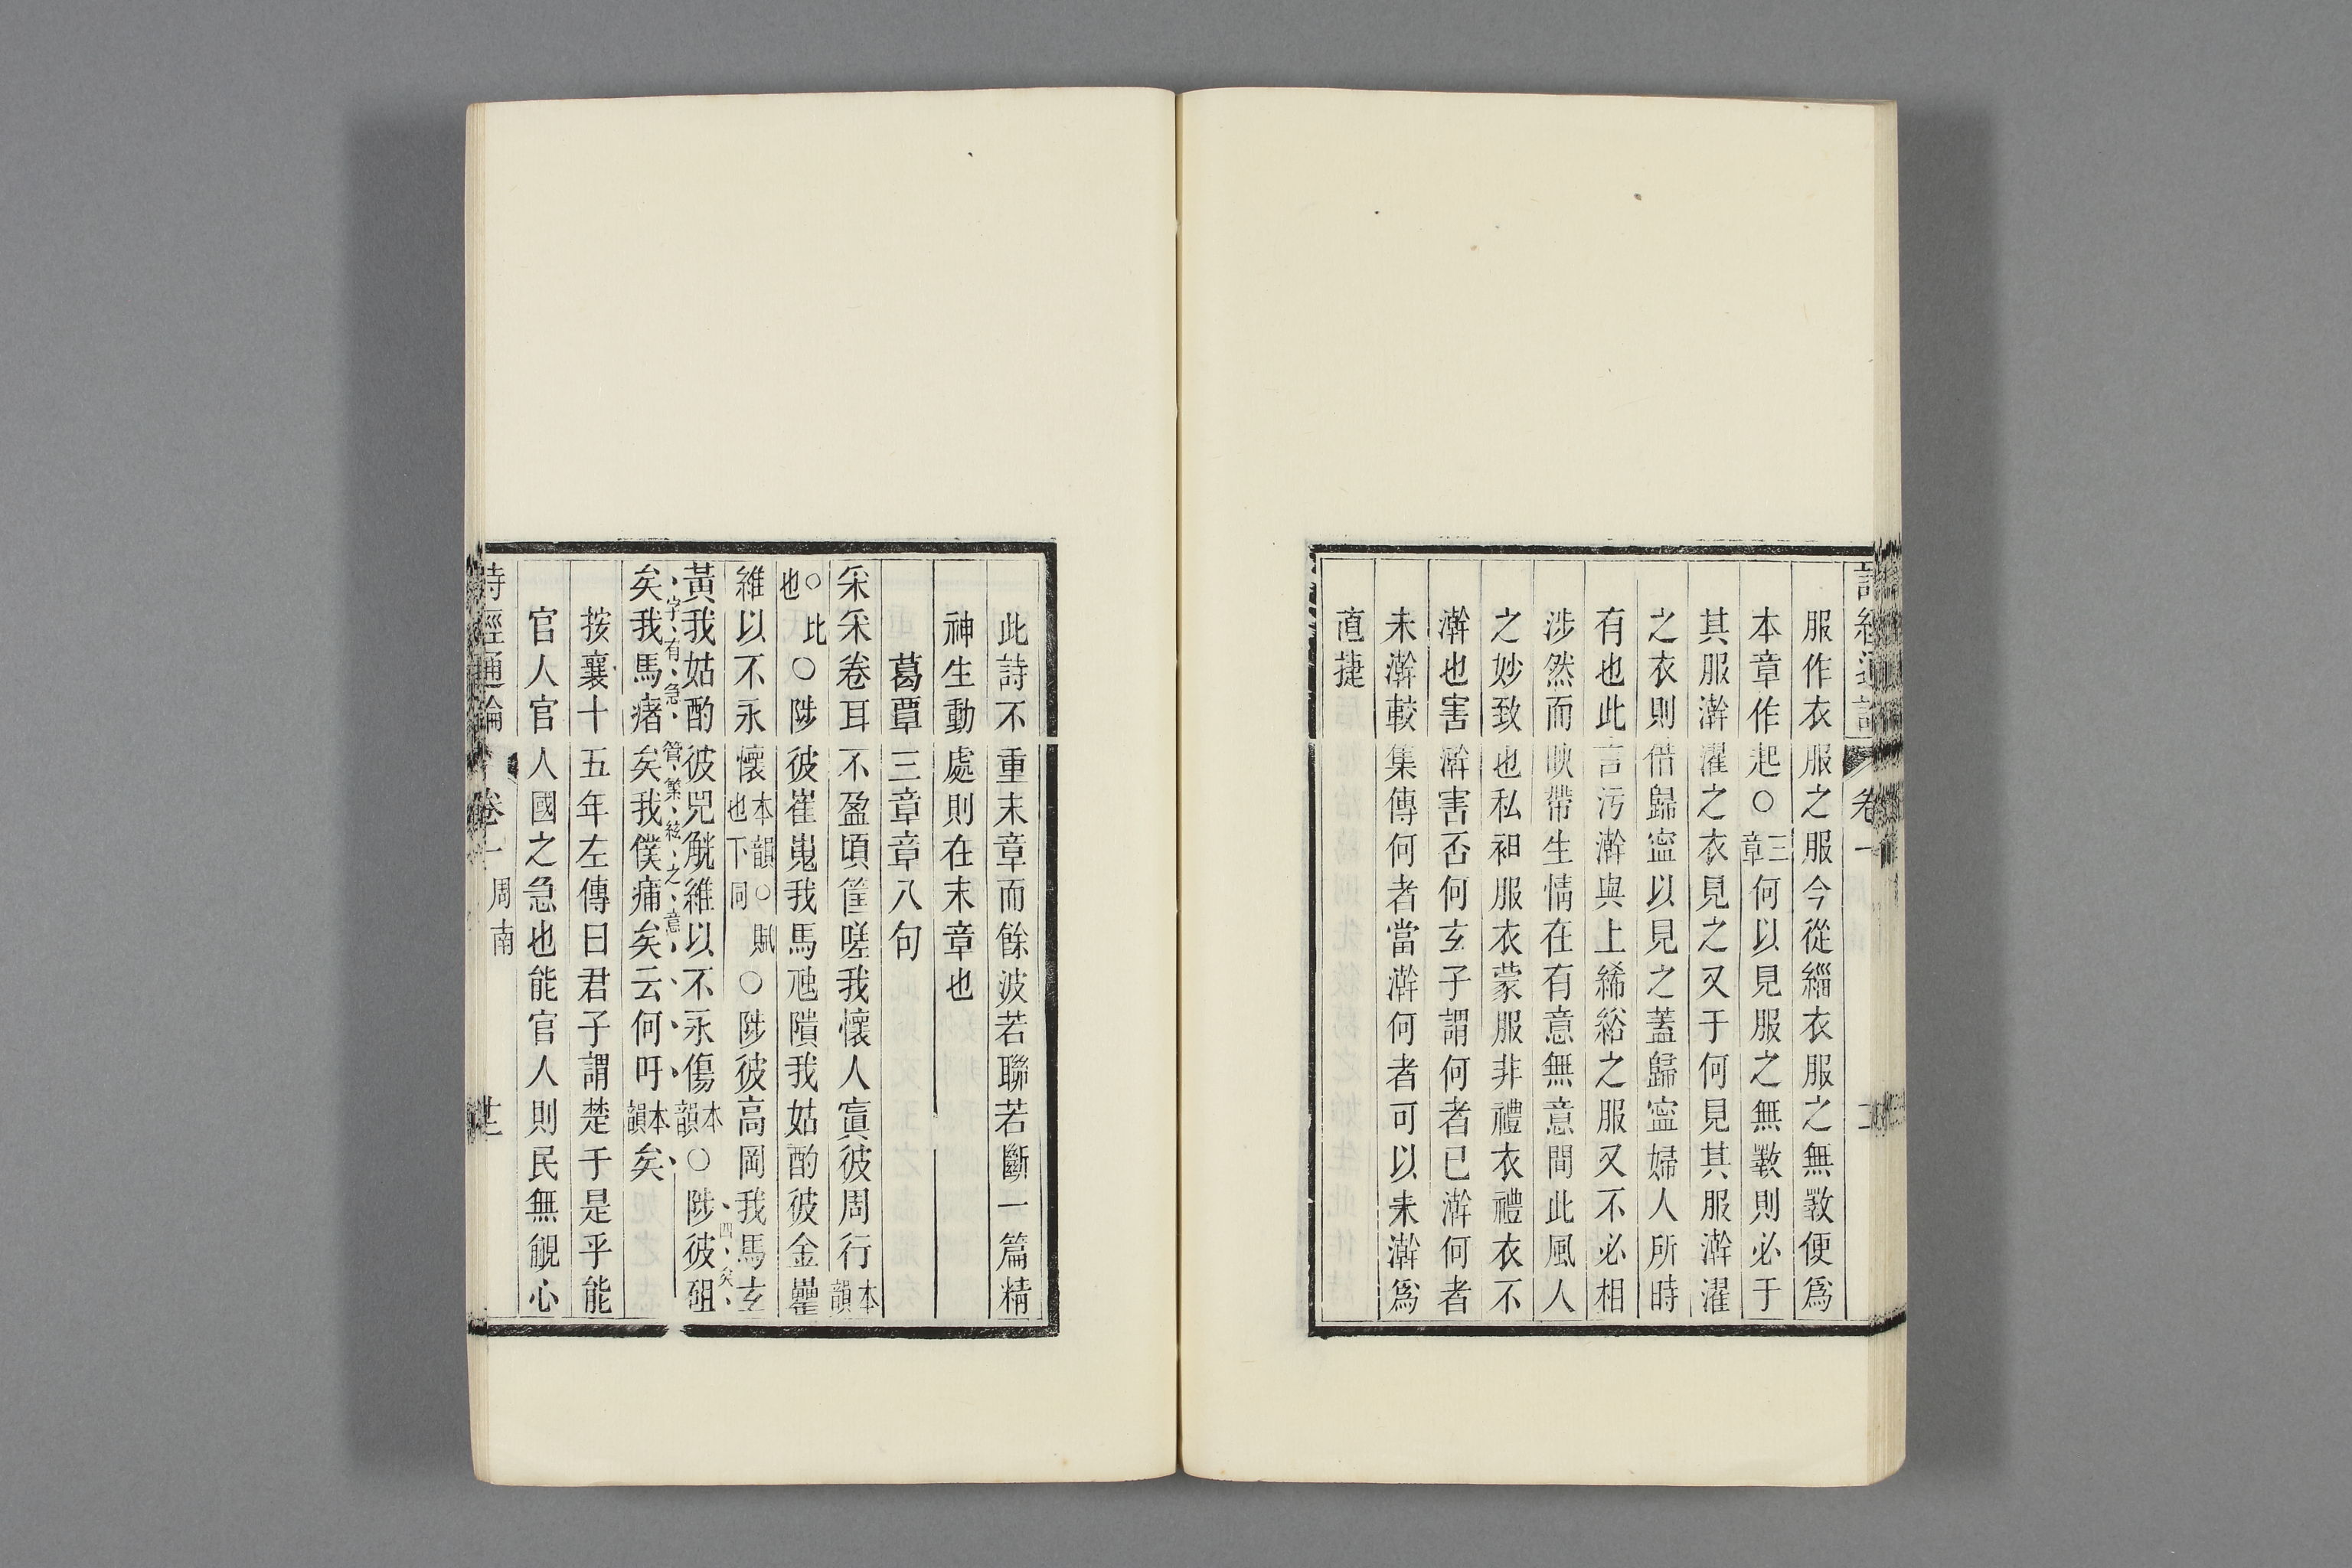 服作衣服之服今從緇衣服之無斁便爲
本章作起○三章何以見服之無斁則必于
其服澣濯之衣見之又于何見其服澣濯
之衣則借歸寍以見之蓋歸寍婦人所時
有也此言污澣與上絺綌之服又不必相
涉然而映帶生情在有意無意間此風人
之妙致也私衵服衣蒙服非禮衣禮衣不
澣也害澣害否何玄子謂何者已澣何者
未澣較集傳何者當澣何者可以未澣爲
直捷
此詩不重末章而餘波若聯若斷一篇精
神生動處則在末章也
葛覃三章章八句
采采卷耳不盈頃筐嗟我懷人寘彼周行本韻
○比也○陟彼崔嵬我馬虺隤我姑酌彼金罍
維以不永懷本韻○賦也下同○陟彼高岡我馬玄
黃我姑酌彼兕觥維以不永傷本韻○陟彼砠
四矣
矣我馬瘏矣我僕痡矣云何吁本韻矣
字有急管繁絃之意
按襄十五年左傳曰君子謂楚于是乎能
官人官人國之急也能官人則民無覦心
詩經通論 卷一 周南